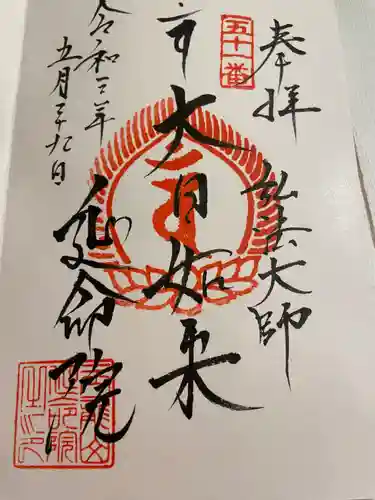 奉拝
五十一番
弘法大師
大日如来
延命院
令和三年
五月二十九日